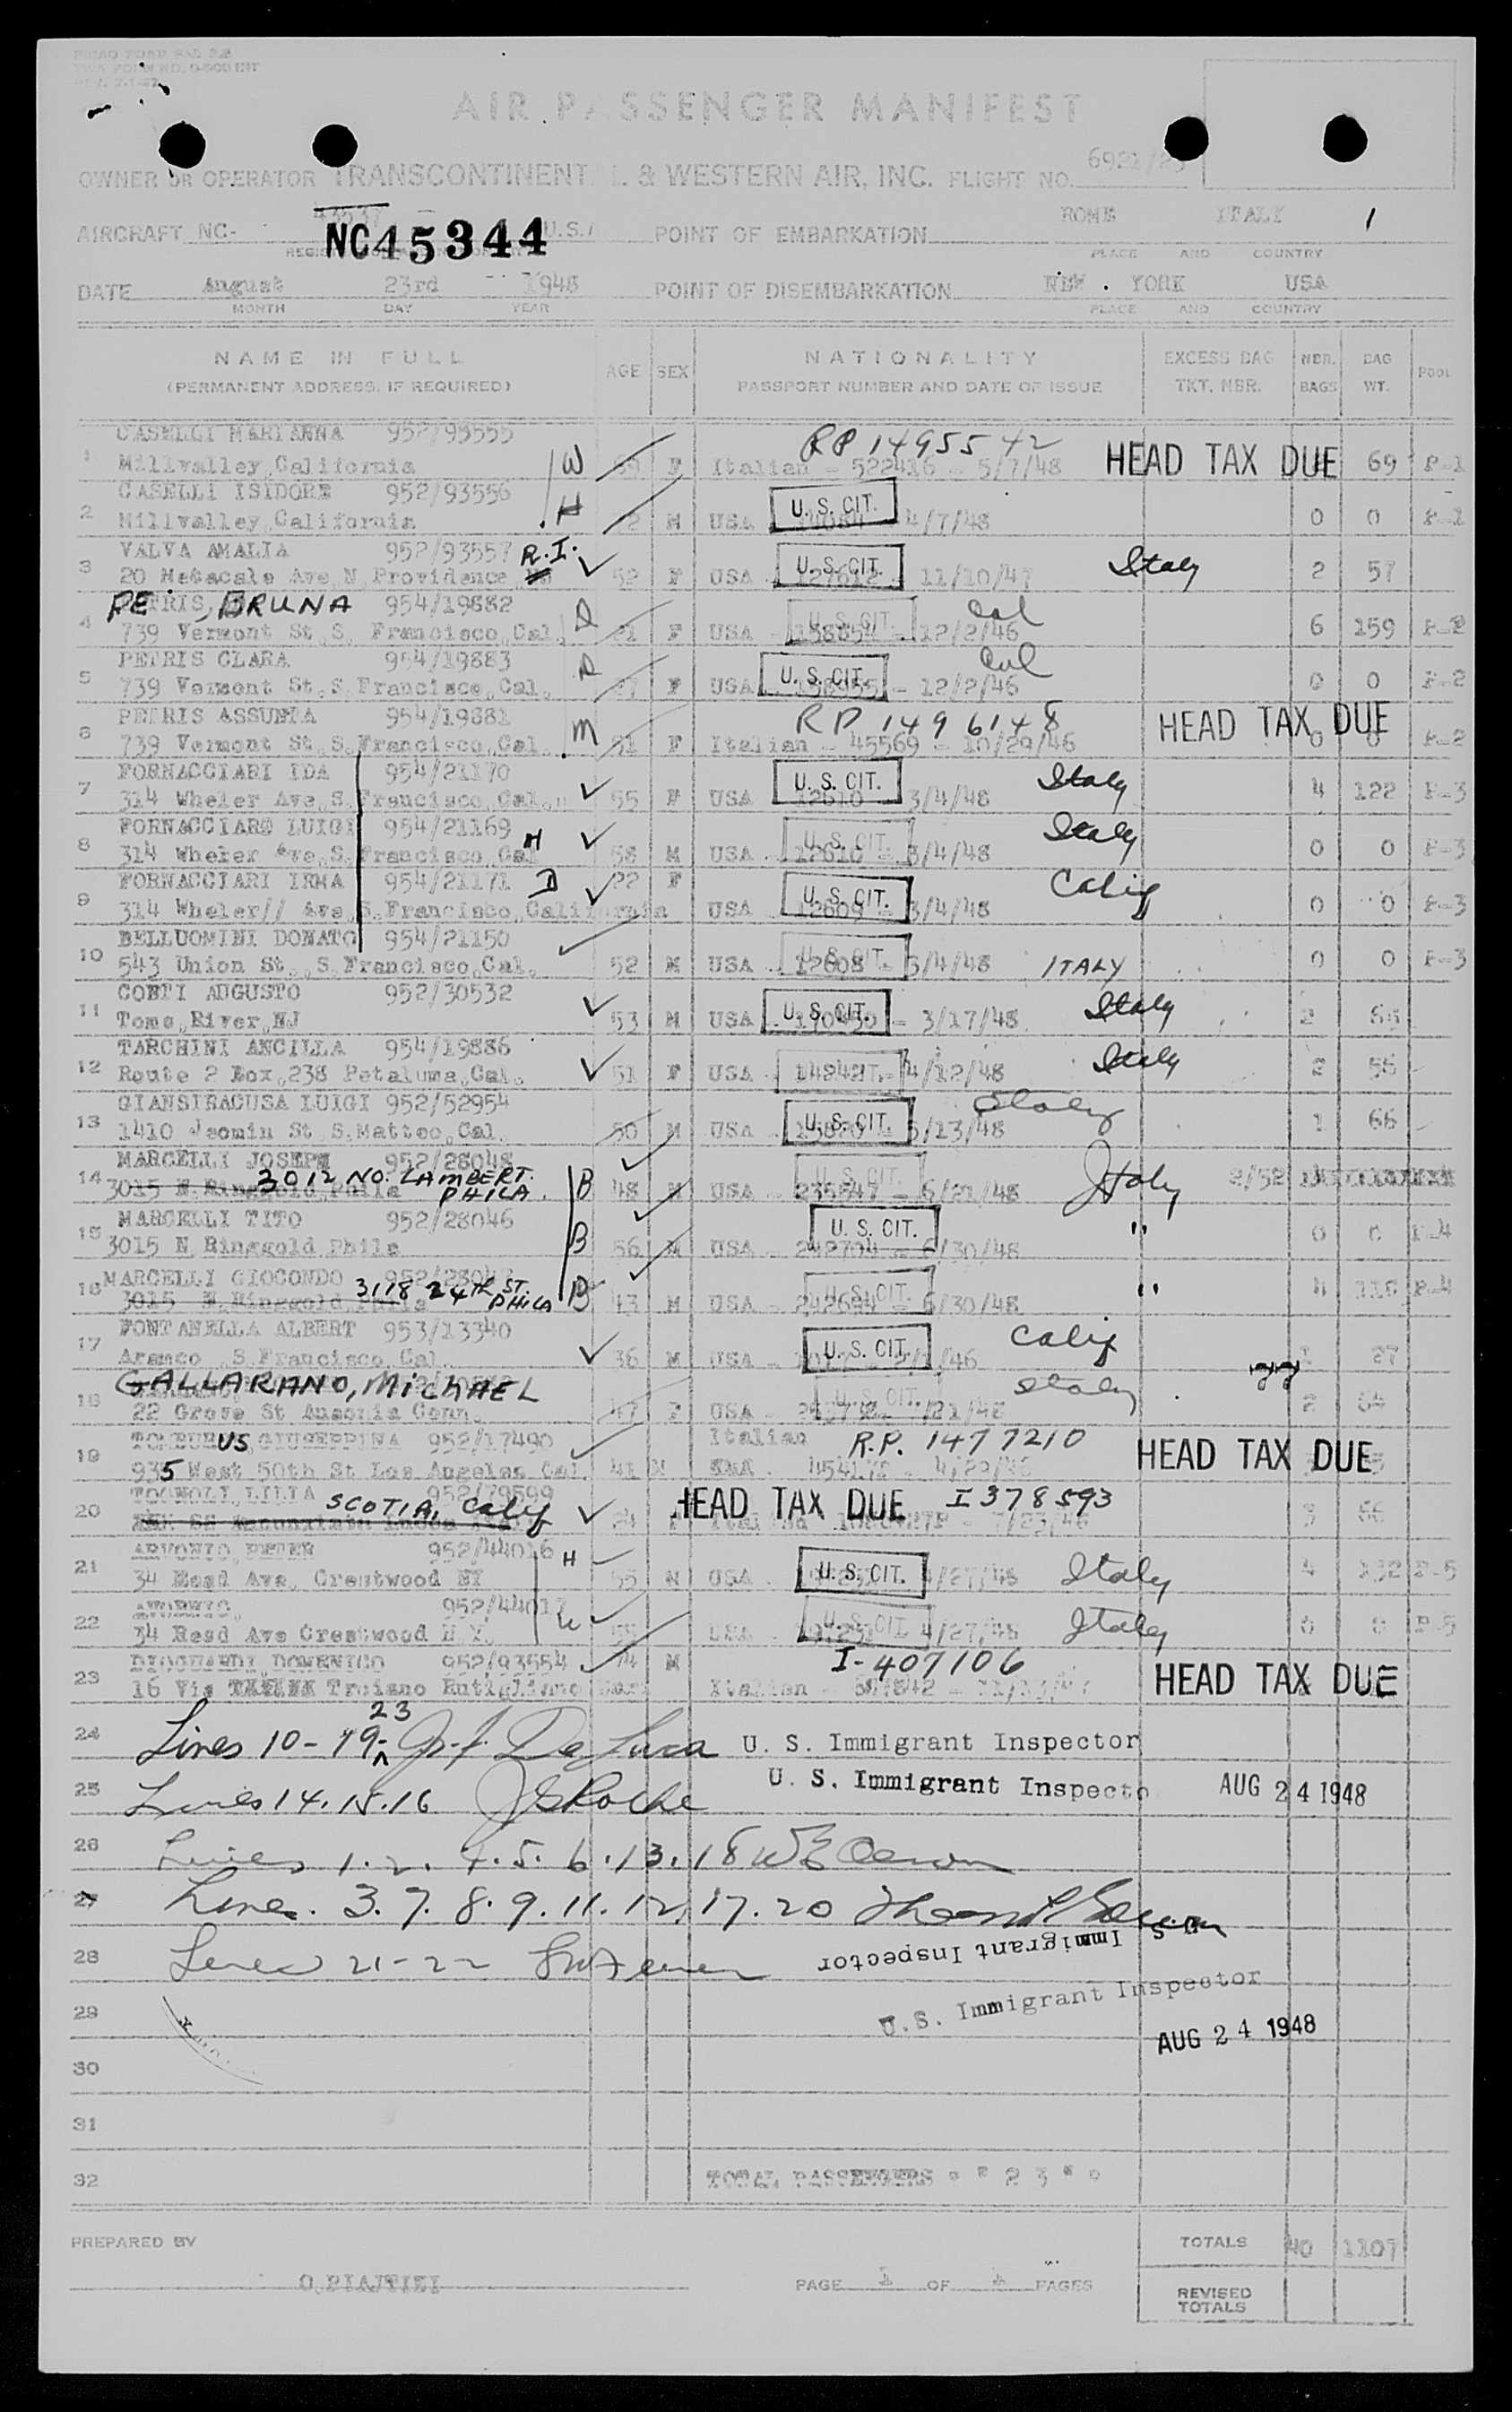 AIR PASSENGER MANIFEST
OWNER OR OPERATOR TRANSCONTINENTAL & WESTERN AIR, INC. FLIGHT NO. 6921/23
AIRCRAFT NC- NC45344 U.S.A POINT OF EMBARKATION ROME ITALY 1
PLACE AND COUNTRY
DATE August 23rd 1948 POINT OF DISEMBARKATION NEW YORK USA
MONTH DAY YEAR PLACE AND COUNTRY
NAME IN FULL NATIONALITY EXCESS BAG NBR. BAG
AGE SEX POOL
(PERMANENT ADDRESS, IF REQUIRED) PASSPORT NUMBER AND DATE OF ISSUE TKT. NBR. BAGS WT.
CASELLI MARIANNA 952/93555 RP 1495542
1 Millvalley, California W F Italian - 522416 - 5/7/48 HEAD TAX DUE 69 P-1
CASELLI ISIDORE 952/93556 U. S. CIT.
2 Millvalley, California H M USA 4/7/48 0 0 P-1
VALVA AMALIA 952/93557 R.I. U. S. CIT. Italy
3 20 Metacale Ave, N Providence 52 F USA - 127612 - 11/10/47 2 57
PE TRIS, BRUNA 954/19882 U. S. CIT. Cal
4 739 Vermont St. S. Francisco, Cal. D 21 F USA - 12/2/46 6 159 P-2
PETRIS CLARA 954/19883 U. S. CIT. Cal
5 739 Vermont St. S. Francisco, Cal. D F USA - 12/2/46 0 0 P-2
PETRIS ASSUNTA 954/19881 RP 1496148 HEAD TAX DUE
6 739 Vermont St. S. Francisco, Cal. M 51 F Italian - 45569 - 10/29/46 0 0 P-2
FORNACCIARI IDA 954/21170 U. S. CIT. Italy
7 314 Wheler Ave, S. Francisco, Cal. 55 F USA 12610 3/4/48 4 122 P-3
FORNACCIARO LUIGI 954/21169 H U. S. CIT. Italy
8 314 Wheler Ave, S. Francisco, Cal 58 M USA - 12610 - 3/4/48 0 0 P-3
FORNACCIARI IRMA 954/21171 D 22 F U. S. CIT. Calif
9 314 Wheler// Ave, S. Francisco, California USA 12609 3/4/48 0 0 P-3
BELLUOMINI DONATO 954/21150 U. S. CIT.
10 543 Union St., S. Francisco, Cal. 52 M USA - 12608 - 3/4/48 ITALY 0 0 P-3
CONTI AUGUSTO 952/30532 U. S. CIT. Italy
11 Toms, River, NJ 53 M USA - 3/17/48 2
TARCHINI ANCILLA 954/19886 Italy
12 Route 2 Box, 238 Petaluma, Cal. 51 F USA 4/12/48 2 55
GIANSIRACUSA LUIGI 952/52954 U. S. CIT. Italy
13 1410 Jeomin St S. Matteo, Cal. 50 M USA 5/13/48 1 66
MARCELLI JOSEPH 952/28048 U. S. CIT.
14 3015 N Ringgold Phila 3012 NO. LAMBERT. PHILA. B 48 M USA - 6/21/48 Italy 2/52
MARCELLI TITO 952/28046 U. S. CIT. "
15 3015 N Ringgold Phila B 56 M USA - 242704 - 6/30/48 0 0 P-4
MARCELLI GIOCONDO U. S. CIT. "
16 3015 N. Ringgold, Phila 3118 24TH ST. PHILA B 43 M USA - 242694 - 6/30/48 4 P-4
FONTANELLA ALBERT 953/13340 U. S. CIT. Calif
17 Aramco, S. Francisco, Cal. 36 M USA 27
GALLARANO, MICHAEL U. S. CIT. Italy
18 22 Grove St Ansonia Conn. 47 F USA 2 64
US GIUSEPPINA 952/17490 Italian R.P. 1477210 HEAD TAX DUE
19 935 West 50th St Los Angeles Cal 41
TOGNOLI LILIA 952/79599 SCOTIA, Calif HEAD TAX DUE I378593
20 24 7/23/46 3 56
ARVONIO PETER 952/44016 H U. S. CIT. Italy
21 34 Read Ave, Crestwood NY 55 M USA 4/27/48 4 132 P-5
952/44017 W U. S. CIT. Italy
22 34 Read Ave Crestwood N Y. USA 4/27/48 0 0 P-5
DIOGUARDI DOMENICO 952/93554 74 M I-407106
23 16 Via Troiano Rutigliano Bari Italian HEAD TAX DUE
24 Lines 10-19-23 J. F. De Luca U. S. Immigrant Inspector
25 Lines 14. 15. 16 J G Roche U. S. Immigrant Inspecto AUG 24 1948
26 Lines 1. 2. 4. 5. 6. 13. 18
27 Lines. 3. 7. 8. 9. 11. 12. 17. 20
28 Lines 21-22 U. S. Immigrant Inspector
29 U. S. Immigrant Inspector
AUG 24 1948
30
31
32 TOTAL PASSENGERS " " 23 " "
PREPARED BY TOTALS 40 1107
PAGE 1 OF PAGES
REVISED TOTALS